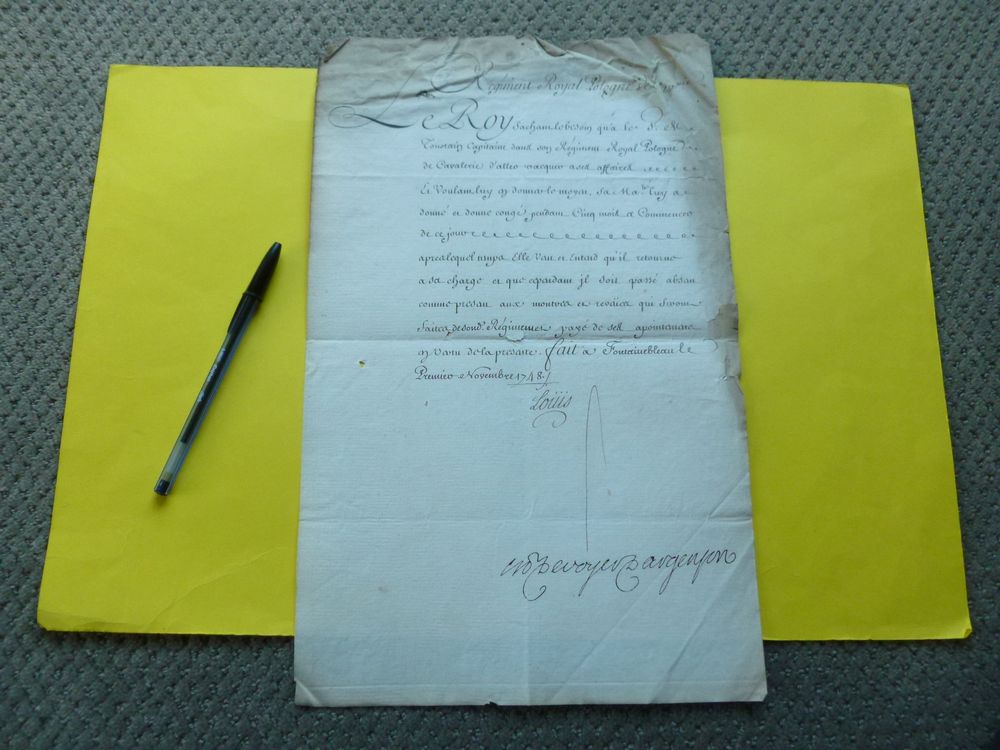 Regiment Royal Pologne de
Le Roy Sachant le besoin qu'a le S.
Toustain Capitaine dans son Régiment Royal Pologne
de Cavalerie d'aller vacquer a ses affaires
Et Voulant luy en donner le moyen, Sa Ma.té luy a
donné et donne congé pendant Cinq mois a Commencer
de ce jour
apres lequel temps Elle Veut et Entend qu'il retourne
a sa charge et que cependant il soit passé absent
comme present aux montres et reveües qui seront
faites de sond. Régiment et payé de ses apointemens
en vertu de la presente. fait a Fontainebleau le
Premier Novembre 1748.
Loüis
M P De voyer D'argenson